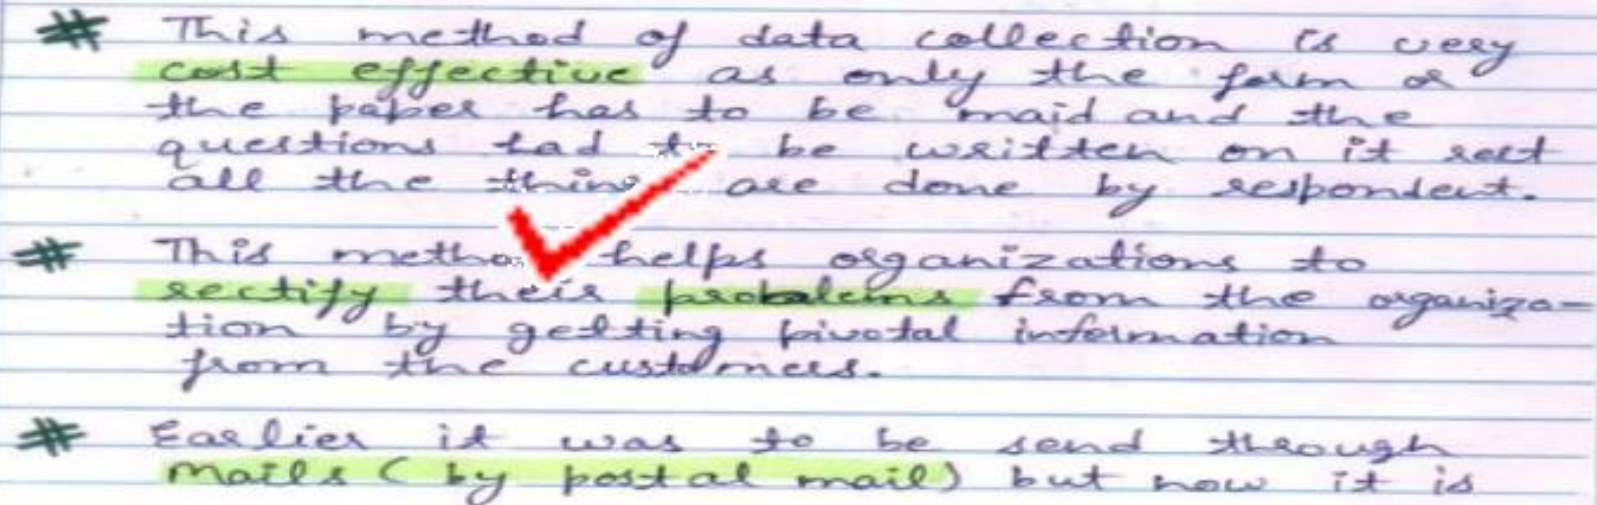 # This method of data collection is very
cost effective as only the form or
the paper has to be maid and the
questions had to be written on it rest
all the thing are done by respondent.
# This method helps organizations to
rectify their problems from the organiza-
tion by getting pivotal information
from the customers.
# Earlier it was to be send through
mails (by postal mail) but now it is